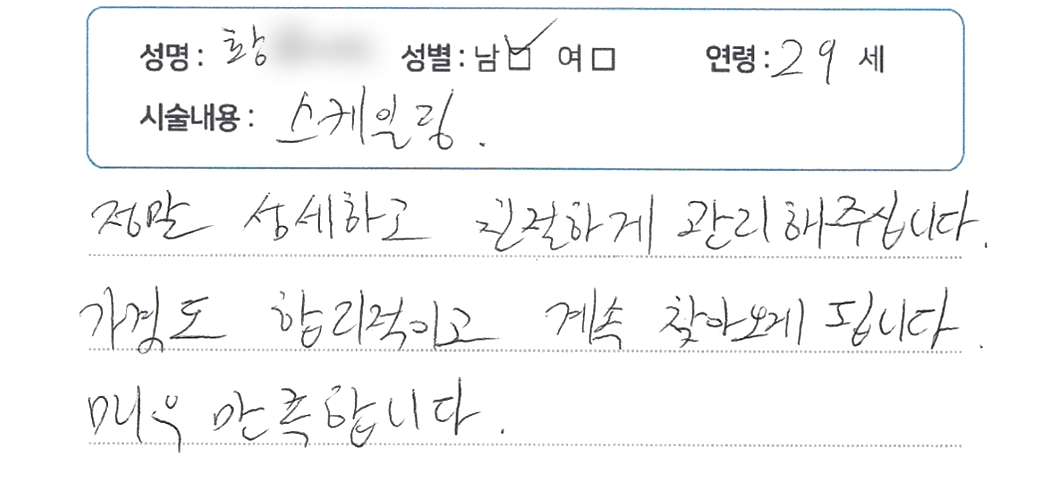 성명: 황 성별: 남 ☑ 여 □ 연령: 29 세
시술내용: 스케일링.
정말 상세하고 친절하게 관리해주십니다.
가격도 합리적이고 계속 찾아오게 됩니다.
매우 만족합니다.